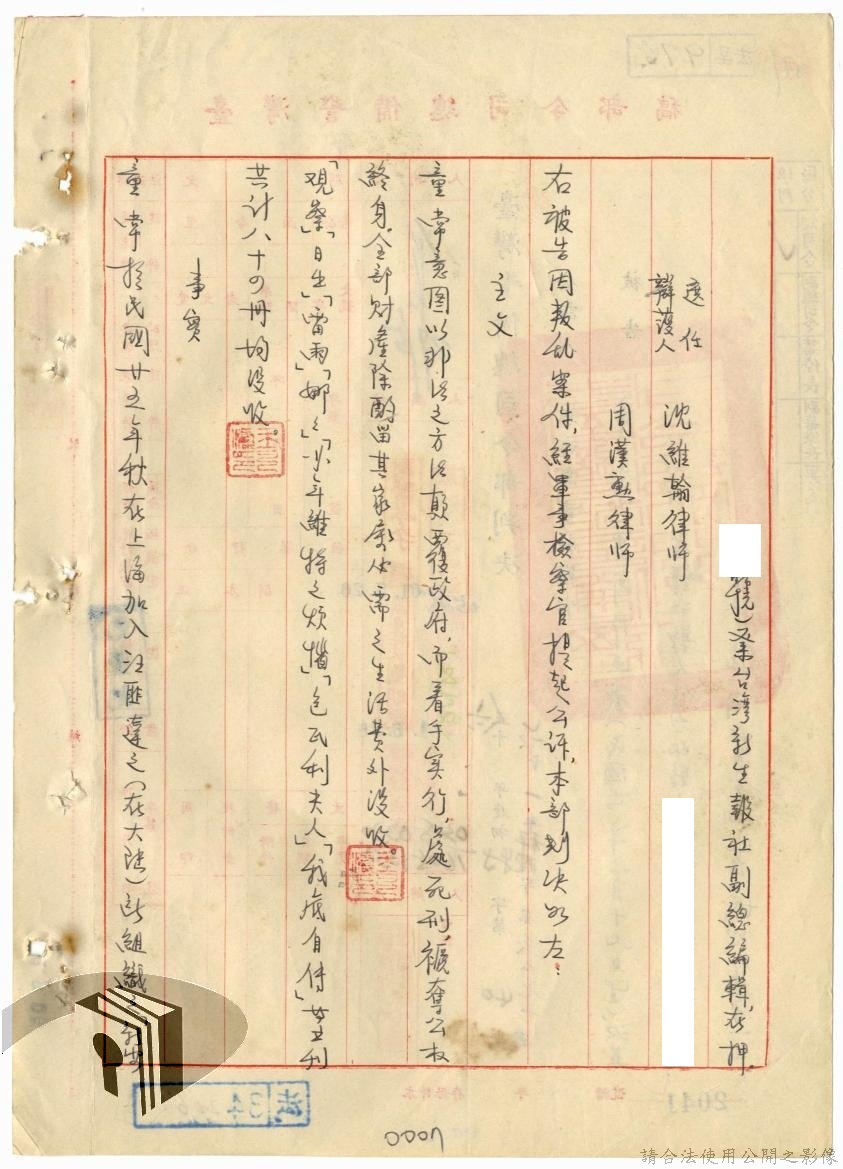 號）業台灣新生報社副總編輯，在押。
選任
辯護人　沈維翰律师
周漢勲律师
右被告因叛乱案件，經軍事檢察官提起公诉，本部判决如左：
主文
童常意圖以非法之方法顛覆政府，而着手实行，處死刑，褫奪公权
終身。全部財產除酌留其家屬必需之生活費外没收。
「观察」「日出」「雷雨」「娜娜」「少年維特之煩惱」「包瓦利夫人」「我底自传」
共计八十四冊均没收。
事实
童常於民國廿五年秋在上海加入汪匪達之（在大陸）所組織之
2041
34
0004
請合法使用公開之影像